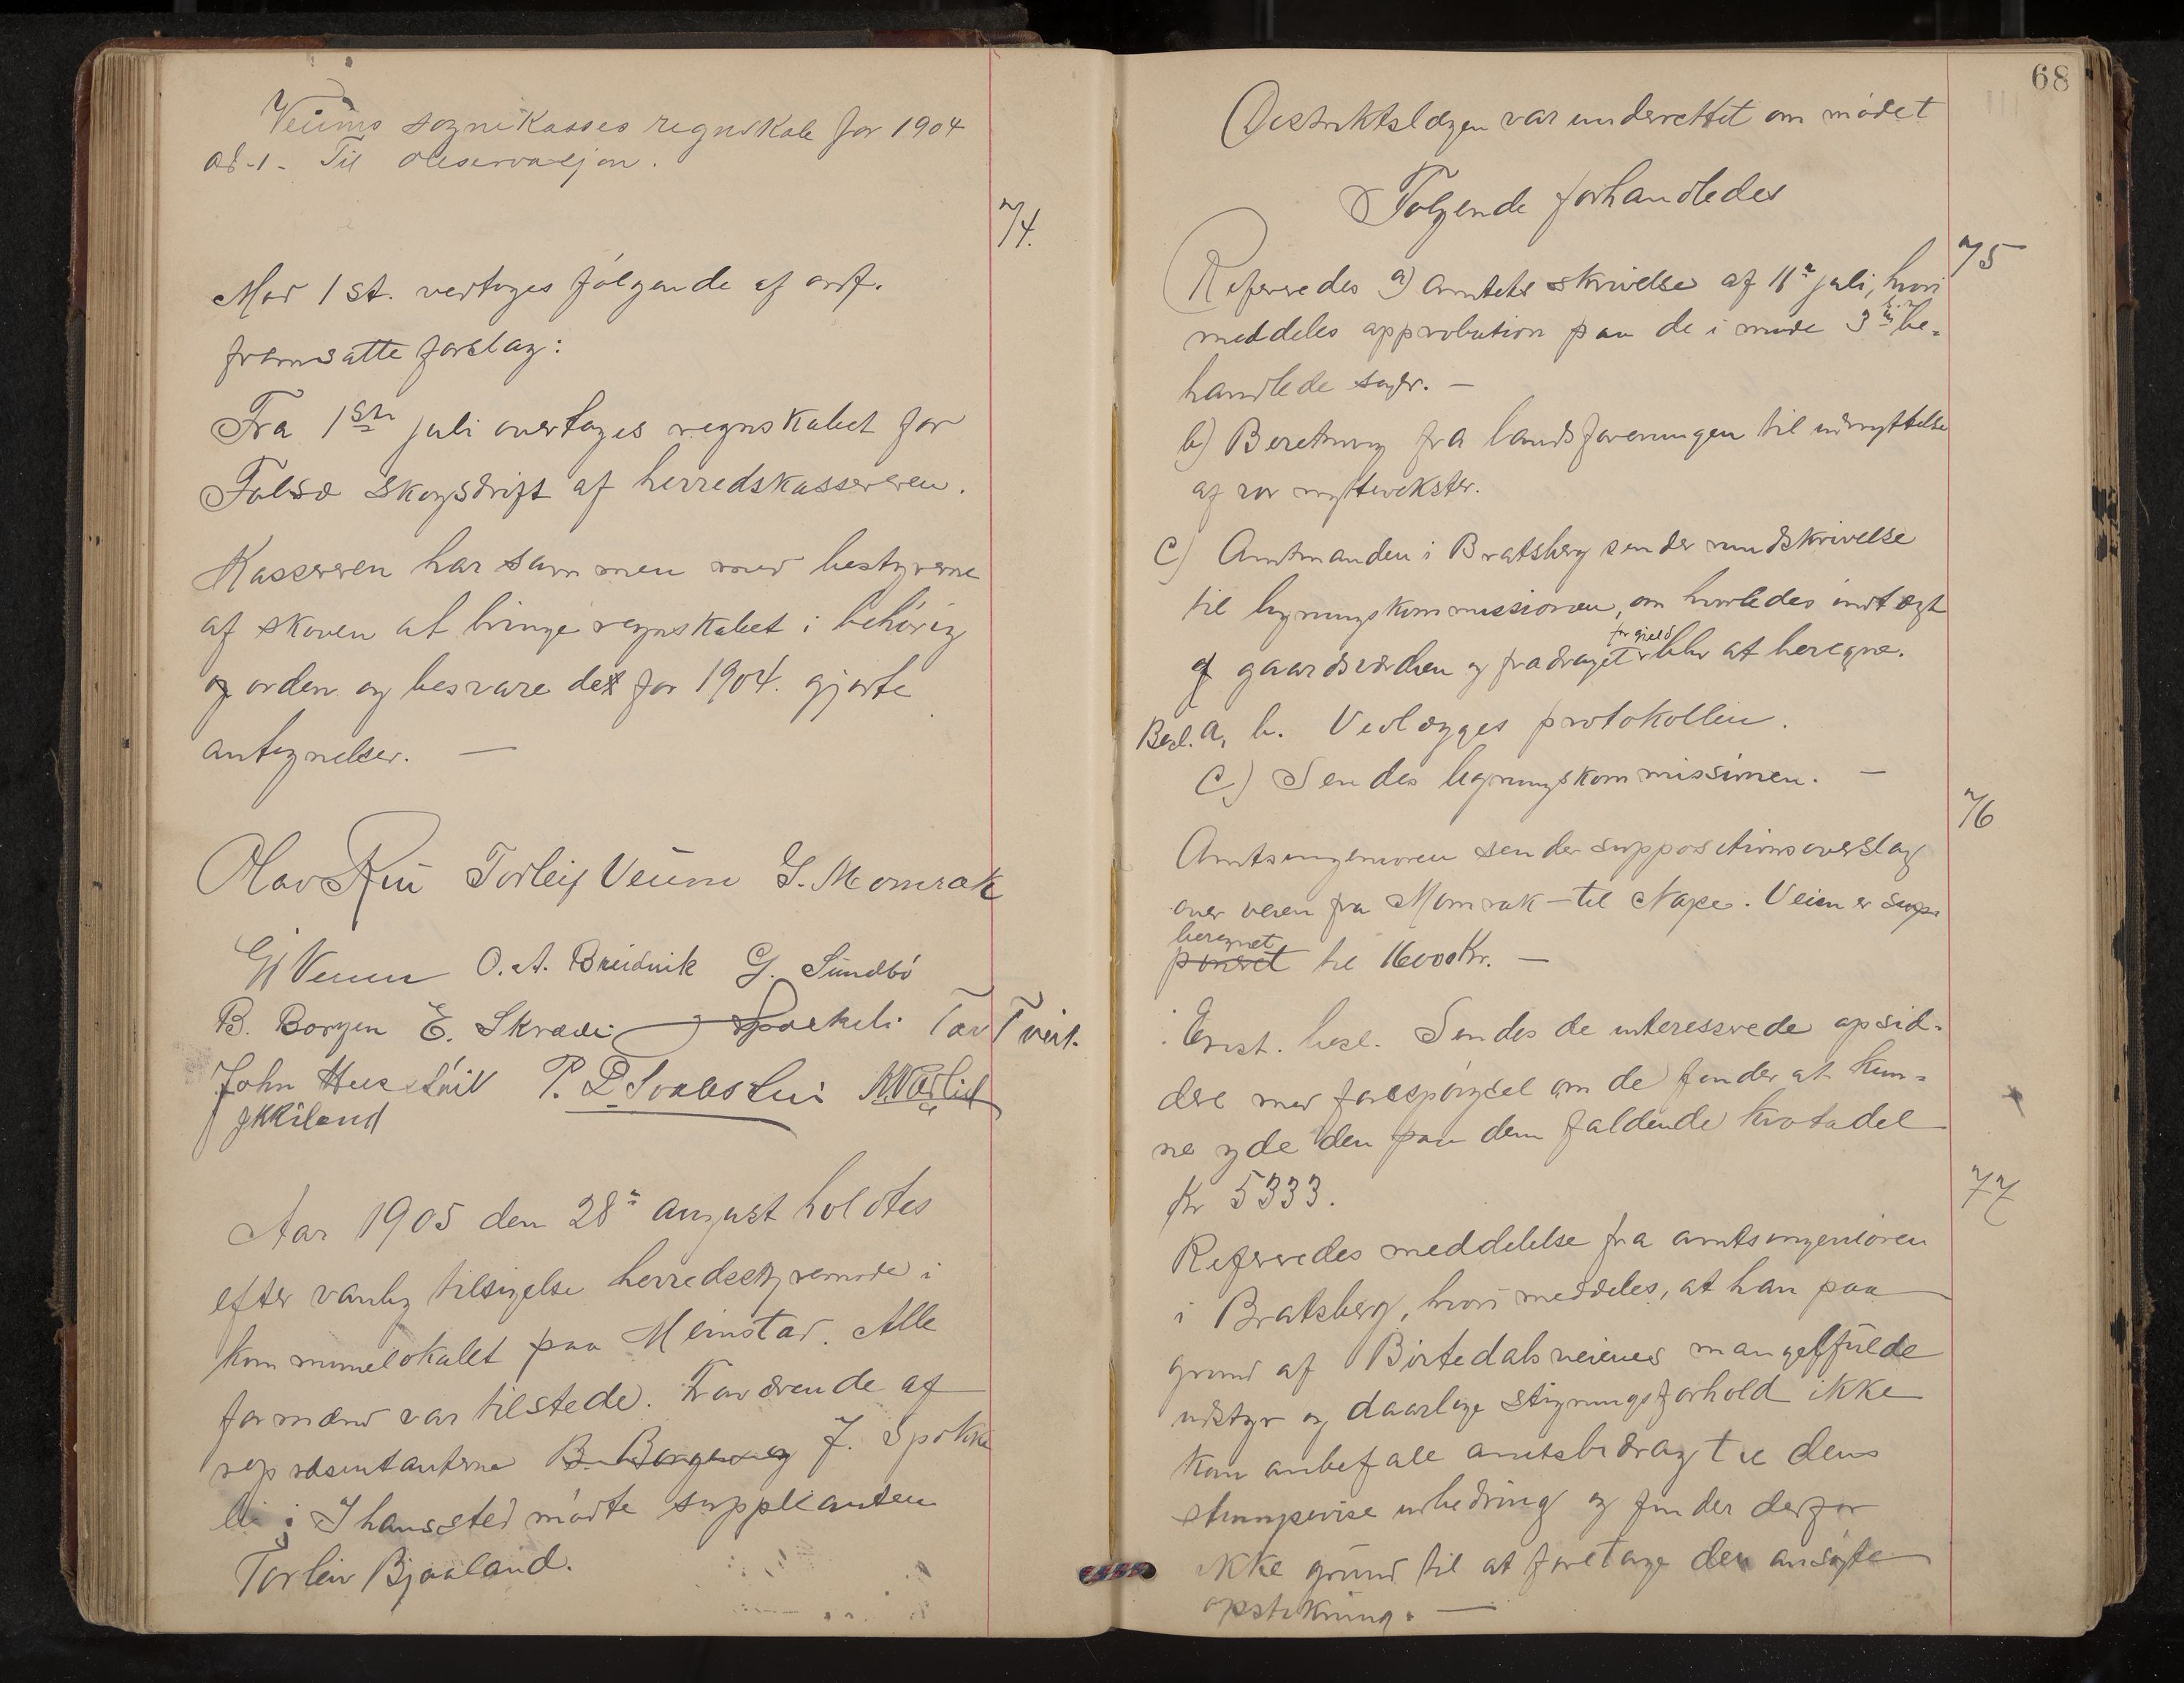 Veums sognekasses regnskab for 1904
ad -1- Til observasjon.
74.
Mod 1 st. vertoges følgende af ordf.
fremsatte forslag:
Fra 1ste juli overtages regnskabet for
Falsø skogsdrift af herredskassereren.
Kassereren har sammen med bestyrerne
af skoven at bringe regnskabet i behørig
og orden og besvare det for 1904. gjorte
antegnelser. —
Olav Riú Torleif Veum G. Momrak
Veum O. A. Breidvik G. Sundbö
B. Borgen E. Skrædei Tov Tveit.
John
Aar 1905 den 28de august holdtes
efter vanlig tilsigelse herredsstyremøde i
kommunelokalet paa Meinstad. Alle
formænd var tilstede. Fraværende af
repræsentanterne B. Borgen og J. Spokke
li i I hans sted mødte suppleanten
Torleiv Bjaaland.
68
Distriktslægen var underrettet om mødet
Følgende forhandledes
75
Refereredes a) amtets skrivelse af 11te juli, hvori
meddeles approbation paa de i møde be-
handlede sager. —
b) Beretning fra landsforeningen til udnyttelse
af vor nyttevekster.
c) Amtmanden i Bratsberg sender rundskrivelse
til ligningskommissionen, om hvorledes indtægt
af gaardsværdien og fradraget for gjæld blir at beregne.
Besl. a, b. Vedlægges protokollen.
c.) Sendes ligningskommissionen. —
76
Amtsingeniøren sender suppositionsoverslag
over veien fra Momrak – til Nape. Veien er supo
beregnet
poneret til 16000 Kr. —
Enst. besl. Sendes de interesserede opsid-
dere med forespørgsel om de finder at kun-
ne yde den paa dem faldende kvotadel
Kr 5333.
77
Refereredes meddelelse fra amtsingeniøren
i Bratsberg, hvori meddeles, at han paa
grund af Birtedalsveiens mangelfulde
udstyr og daarlige stigningsforhold ikke
kan anbefale amtsbidrag til dens
stumpevise udbedring og finder derfor
ikke grund til at foretage den ansøgte
opstikning. —